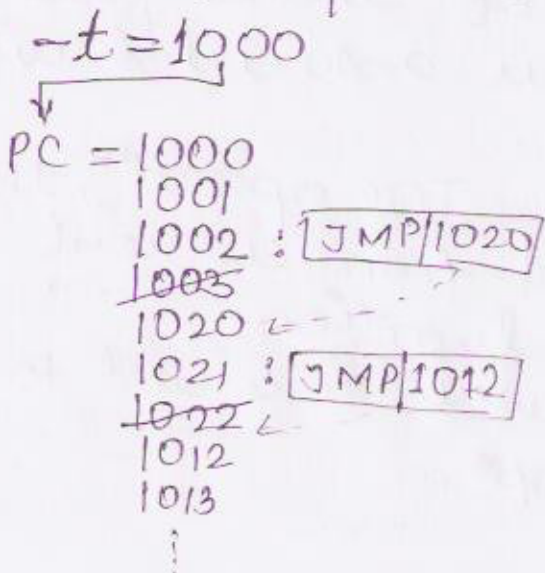 -t = 1000
PC = 1000
1001
1002 : JMP|1020
1003
1020
1021 : JMP|1012
1022
1012
1013